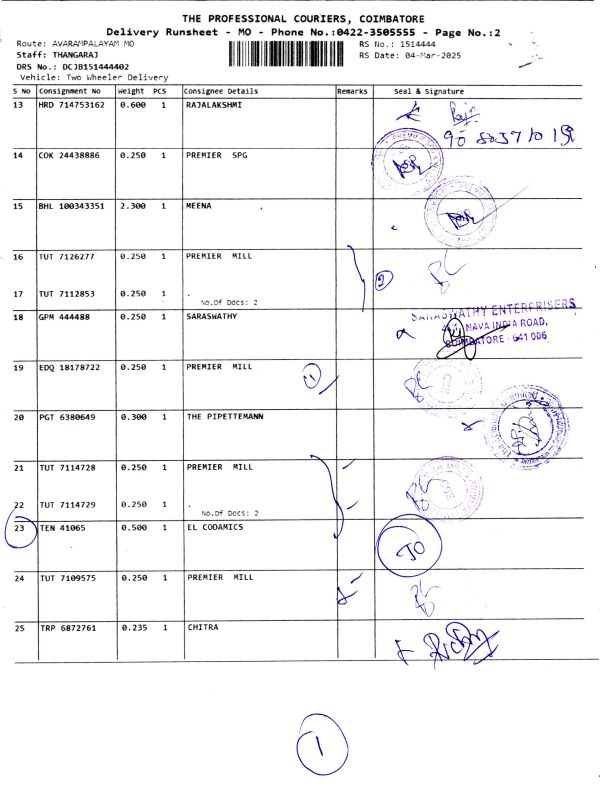 THE PROFESSIONAL COURIERS, COIMBATORE
Delivery Runsheet - MO - Phone No.:0422-3505555 - Page No.:2
Route: AVARAMPALAYAM MO
RS No.: 1514444
Staff: THANGARAJ
RS Date: 04-Mar-2025
DRS No.: DCJB151444402
Vehicle: Two Wheeler Delivery
S No Consignment No Weight PCS Consignee Details Remarks Seal & Signature
13 HRD 714753162 0.600 1 RAJALAKSHMI
14 COK 24438886 0.250 1 PREMIER SPG
15 BHL 100343351 2.300 1 MEENA
16 TUT 7126277 0.250 1 PREMIER MILL
2
17 TUT 7112853 0.250 1 .
No.Of Docs: 2
18 GPM 444488 0.250 1 SARASWATHY
SARASWATHY ENTERPRISERS
NAVA INDIA ROAD,
COIMBATORE - 641 006
19 EDQ 18178722 0.250 1 PREMIER MILL
20 PGT 6380649 0.300 1 THE PIPETTEMANN
21 TUT 7114728 0.250 1 PREMIER MILL
22 TUT 7114729 0.250 1 .
No.Of Docs: 2
23 TEN 41065 0.500 1 EL CODAMICS
24 TUT 7109575 0.250 1 PREMIER MILL
25 TRP 6872761 0.235 1 CHITRA
1